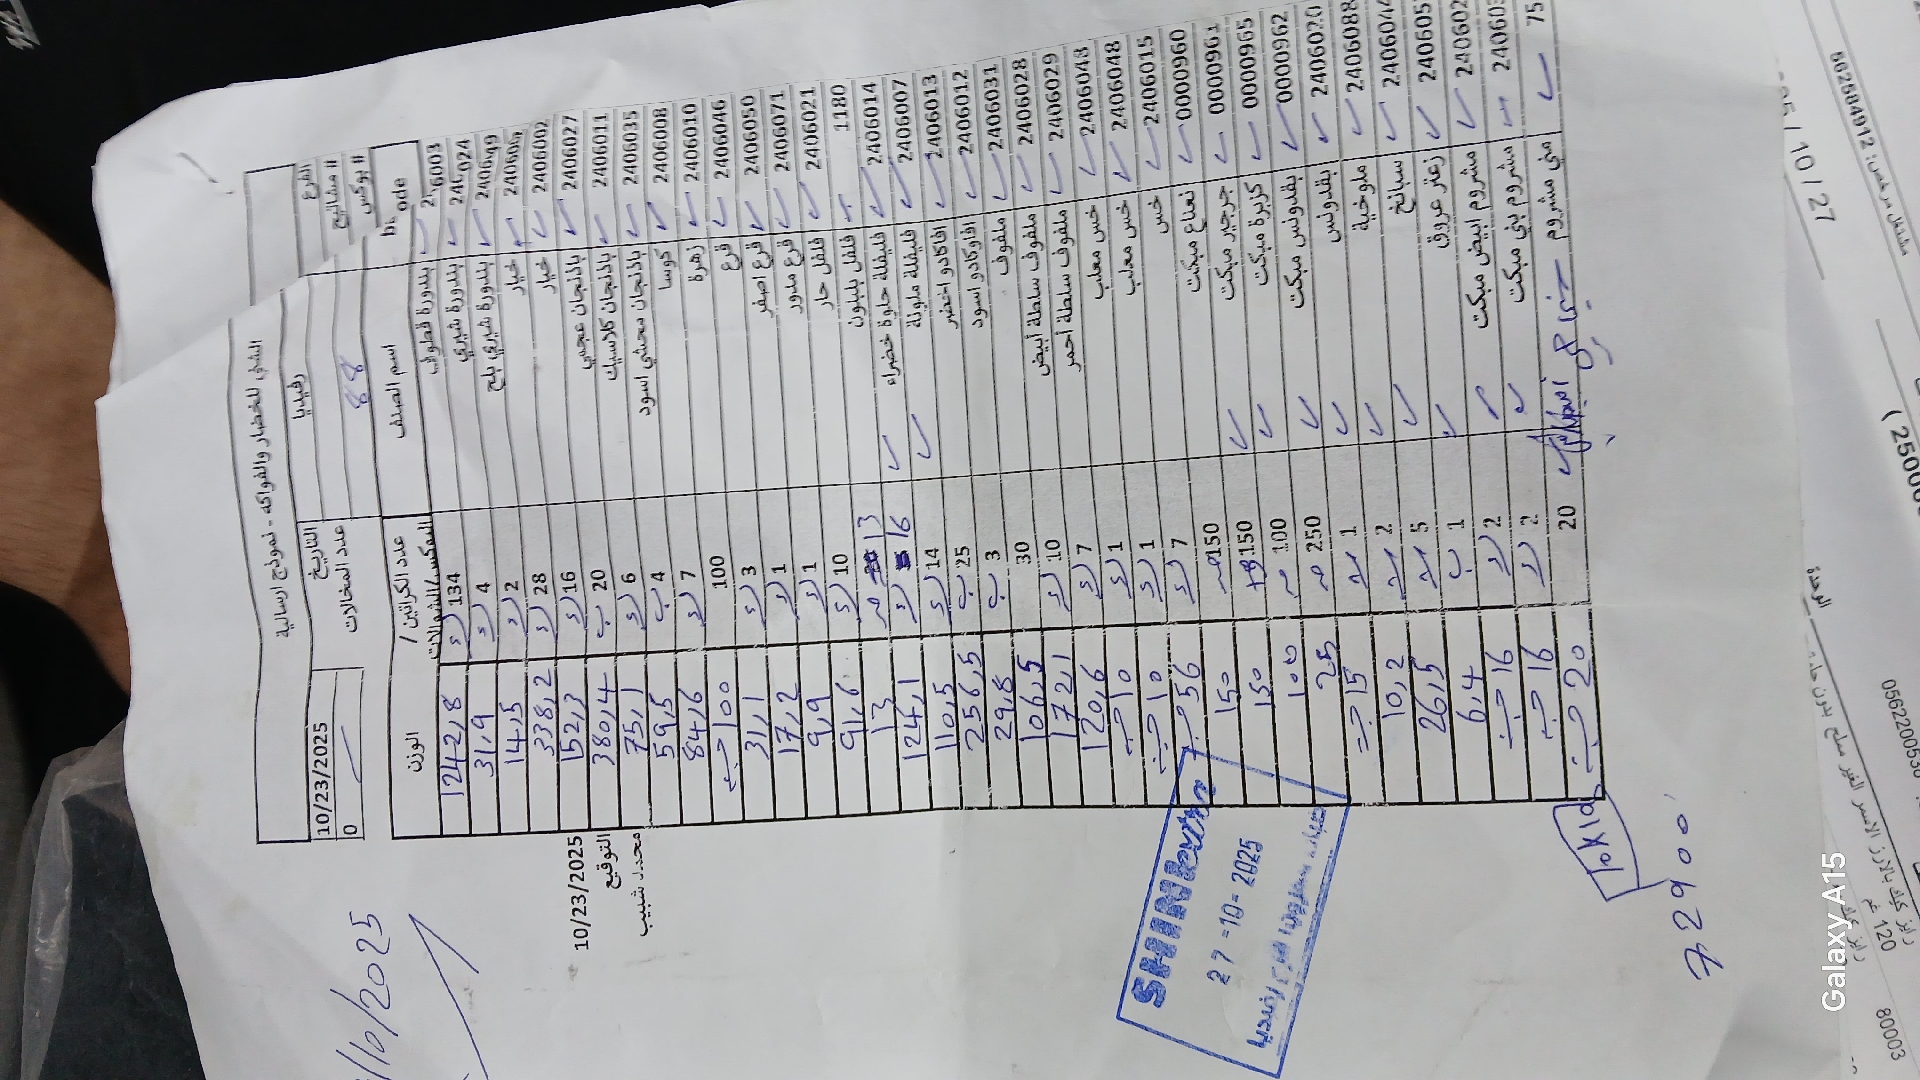 الشني للخضار والفواكه - نموذج ارسالية
الفرع رفيديا التاريخ 10/23/2025
# مشاتيح عدد المخالات 0
# بوكس 88
اسم الصنف عدد الكراتين / البوكس/الشوالات الوزن
بندورة قطوف 134 1242,8
2406024 بندورة شيري 4 31,9
2406049 بندورة شيري بلح 2 14,5
خيار 28 338,2
2406002 خيار 16 152,3
2406027 باذنجان عجمي 20 380,4
2406011 باذنجان كلاسيك 6 75,1
2406035 باذنجان محشي اسود 4 59,5
2406008 كوسا 7 84,6
2406010 زهرة 100 100
2406046 قرع 3 31,1
2406050 قرع اصفر 1 17,2
2406071 قرع مدور 1 9,9
2406021 فلفل حار 10 91,6
1180 فلفل بلبلون 13 13
2406014 فليفلة حلوة خضراء 16 124,1
2406007 فليفلة ملونة 14 110,5
2406013 افاكادو اخضر 25 256,5
2406012 افاوكادو اسود 3 29,8
2406031 ملفوف 30 106,5
2406028 ملفوف سلطة أبيض 10 172,1
2406029 ملفوف سلطة احمر 7 120,6
2406043 خس معلب 1 10
2406048 خس معلب 1 10
2406015 خس 7 56
0000960 نعناع مبكت 150 150
0000961 جرجير مبكت 150 150
0000965 كزبرة مبكت 100 100
0000962 بقدونس مبكت 250 25
2406020 بقدونس 1 15
2406088 ملوخية 2 10,2
سبانخ 5 26,5
زعتر عروق 1 6,4
مشروم ابيض مبكت 2 16
مشروم بني مبكت 2 16
75 مني مشروم 20 20
10/23/2025
التوقيع
محمد شبيب
/10/2025
SHINI
27-10-2025
10X10
32900
/10/27
(2500
0562200530
120
80003
Galaxy A15